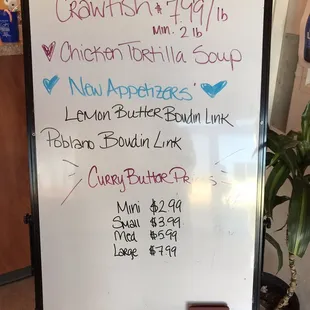 Crawfish $7.99/lb
Min. 2 lb
Chicken Tortilla Soup
New Appetizers
Lemon Butter Boudin Link
Poblano Boudin Link
Curry Butter Prices
Mini $2.99
Small $3.99
Med $5.99
Large $7.99